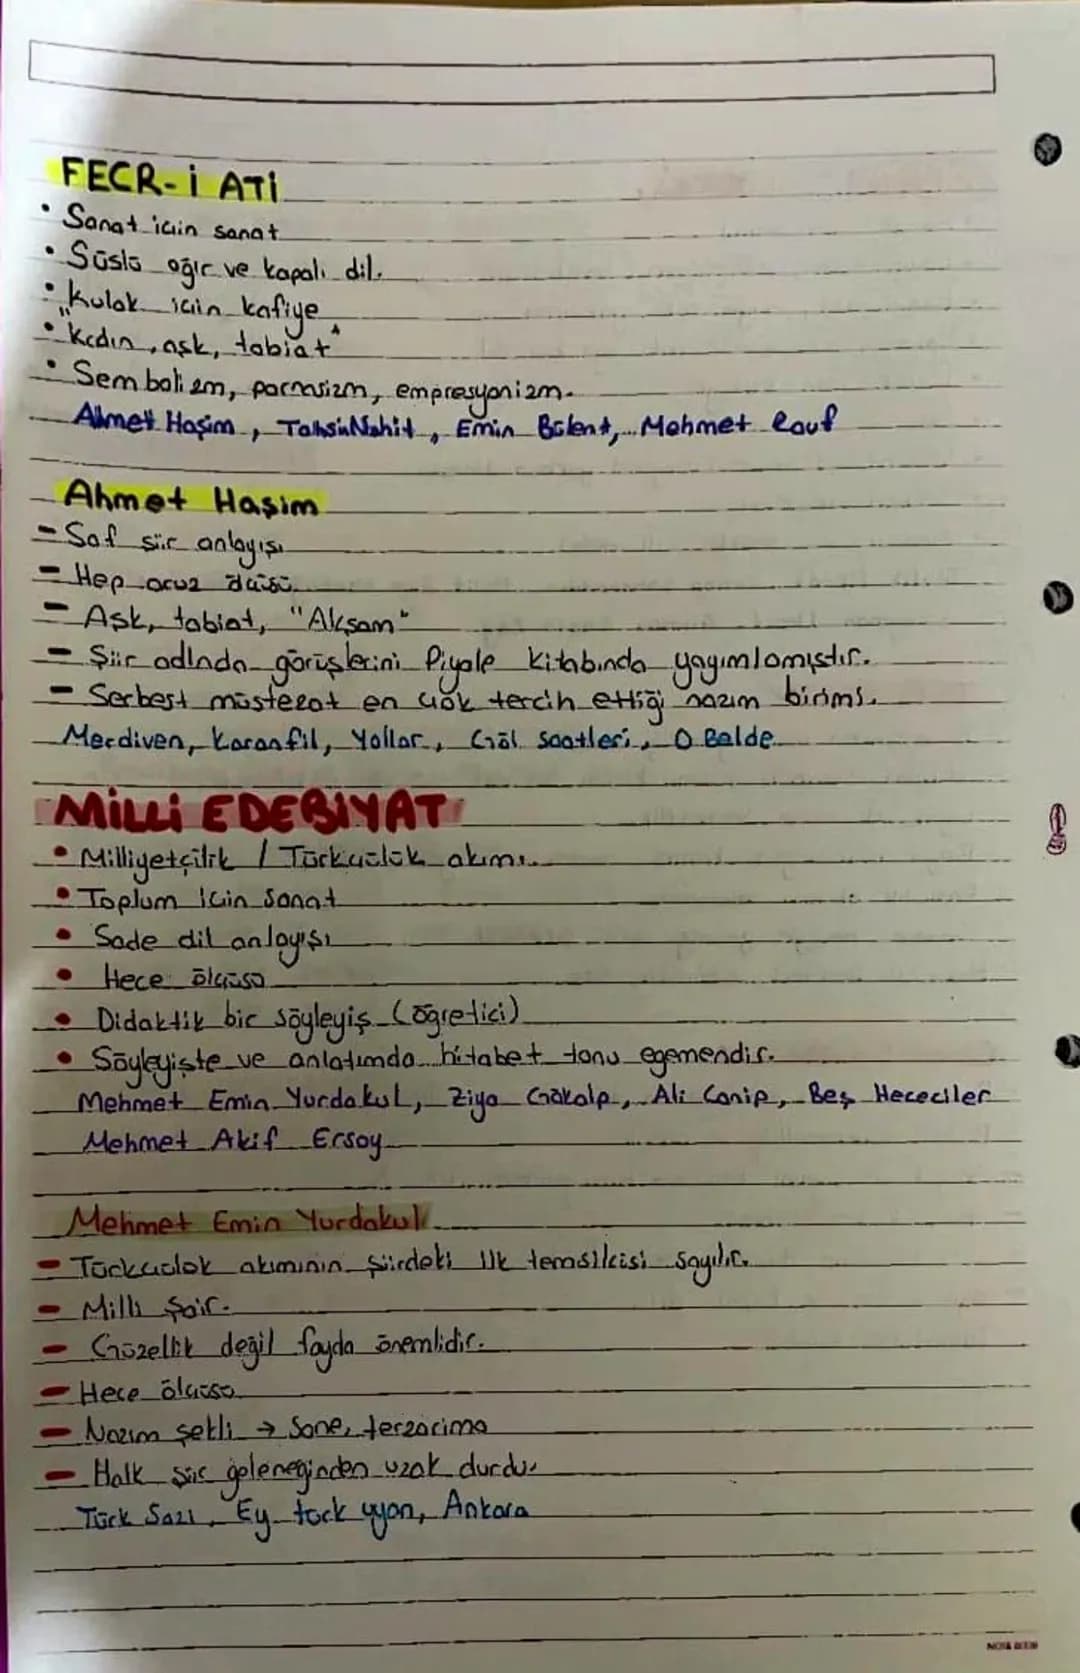 FECR-İ ATİ
• Sanat için sanat
• Süslü ağır ve kapalı dil.
• Kulak için kafiye
• "Kadın, aşk, tabiat"
• Sembolizm, parnasizm, empresyonizm.
Ahmet Haşim, Tahsin Nahit, Emin Bülent, Mehmet Rauf
Ahmet Haşim
- Saf şiir anlayışı
- Hep aruz ölçüsü
- Aşk, tabiat, "Akşam"
- Şiir adında görüşlerini Piyale kitabında yayımlamıştır.
- Serbest müstezat en çok tercih ettiği nazım birimi.
Merdiven, Karanfil, Yollar, Göl Saatleri, O Belde
MİLLİ EDEBİYAT
• Milliyetçilik / Türkçülük akımı.
• Toplum için sanat
• Sade dil anlayışı
• Hece ölçüsü
• Didaktik bir söyleyiş (öğretici)
• Söyleyişte ve anlatımda hitabet tonu egemendir.
Mehmet Emin Yurdakul, Ziya Gökalp, Ali Canip, Beş Hececiler
Mehmet Akif Ersoy
Mehmet Emin Yurdakul
- Türkçülük akımının şiirdeki ilk temsilcisi sayılır.
- Milli Şair.
- Güzellik değil fayda önemlidir.
- Hece ölçüsü
- Nazım şekli → Sone, terzarima
- Halk şiir geleneğinden uzak durdu.
Türk Sazı, Ey türk uyan, Ankara